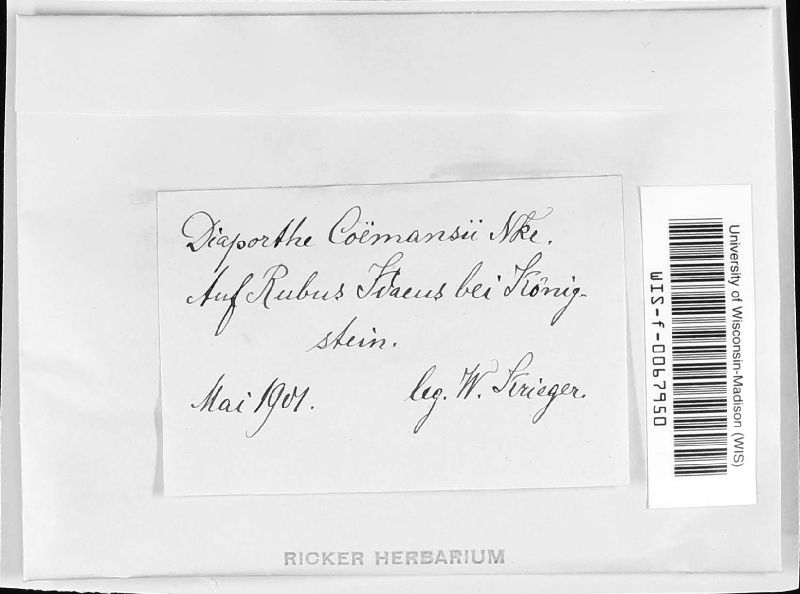 Diaporthe Coëmansii Nke.
Auf Rubus Idaeus bei König-
stein.
Mai 1901.
leg. W. Krieger.
University of Wisconsin-Madison (WIS)
WIS-f-0067950
RICKER HERBARIUM